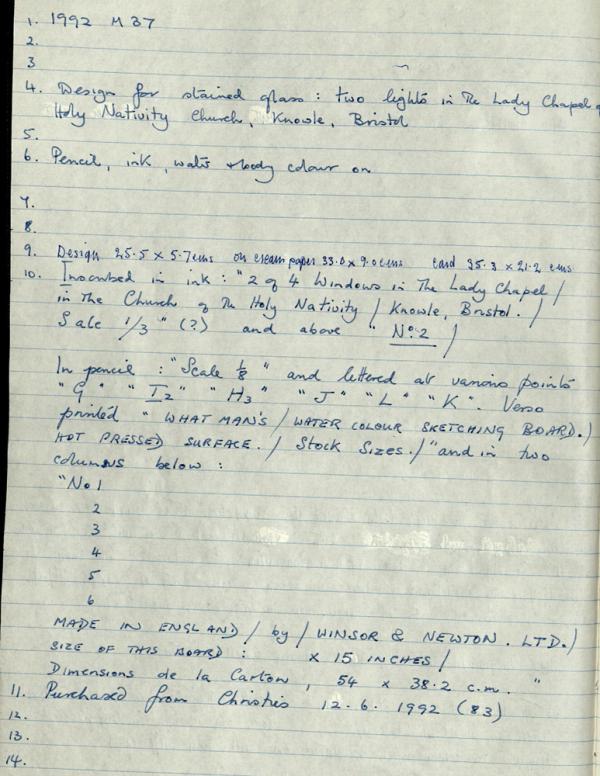 1. 1992 M 37
2.
3
4. Design for stained glass : two lights in The Lady Chapel of
Holy Nativity Church, Knowle, Bristol
5.
6. Pencil, ink, water & body colour on
7.
8.
9. Design 25.5 x 5.7 cms on cream paper 33.0 x 9.0 cms card 35.3 x 21.2 cms
10. Inscribed in ink : "2 of 4 Windows in The Lady Chapel /
in The Church of The Holy Nativity / Knowle, Bristol. /
Scale 1/3 " (?) and above " No: 2 /
In pencil : "Scale 1/8 " and lettered at various points
"G" "I2" "H3" "J" "L" "K". Verso
printed " WHAT MAN'S / WATER COLOUR SKETCHING BOARD. /
HOT PRESSED SURFACE. / STOCK SIZES. / " and in two
columns below :
"No 1
2
3
4
5
6
MADE IN ENGLAND / by / WINSOR & NEWTON . LTD. /
SIZE OF THIS BOARD : x 15 INCHES /
Dimensions de la Carton, 54 x 38.2 c.m. "
11. Purchased from Christies 12.6.1992 (83)
12.
13.
14.